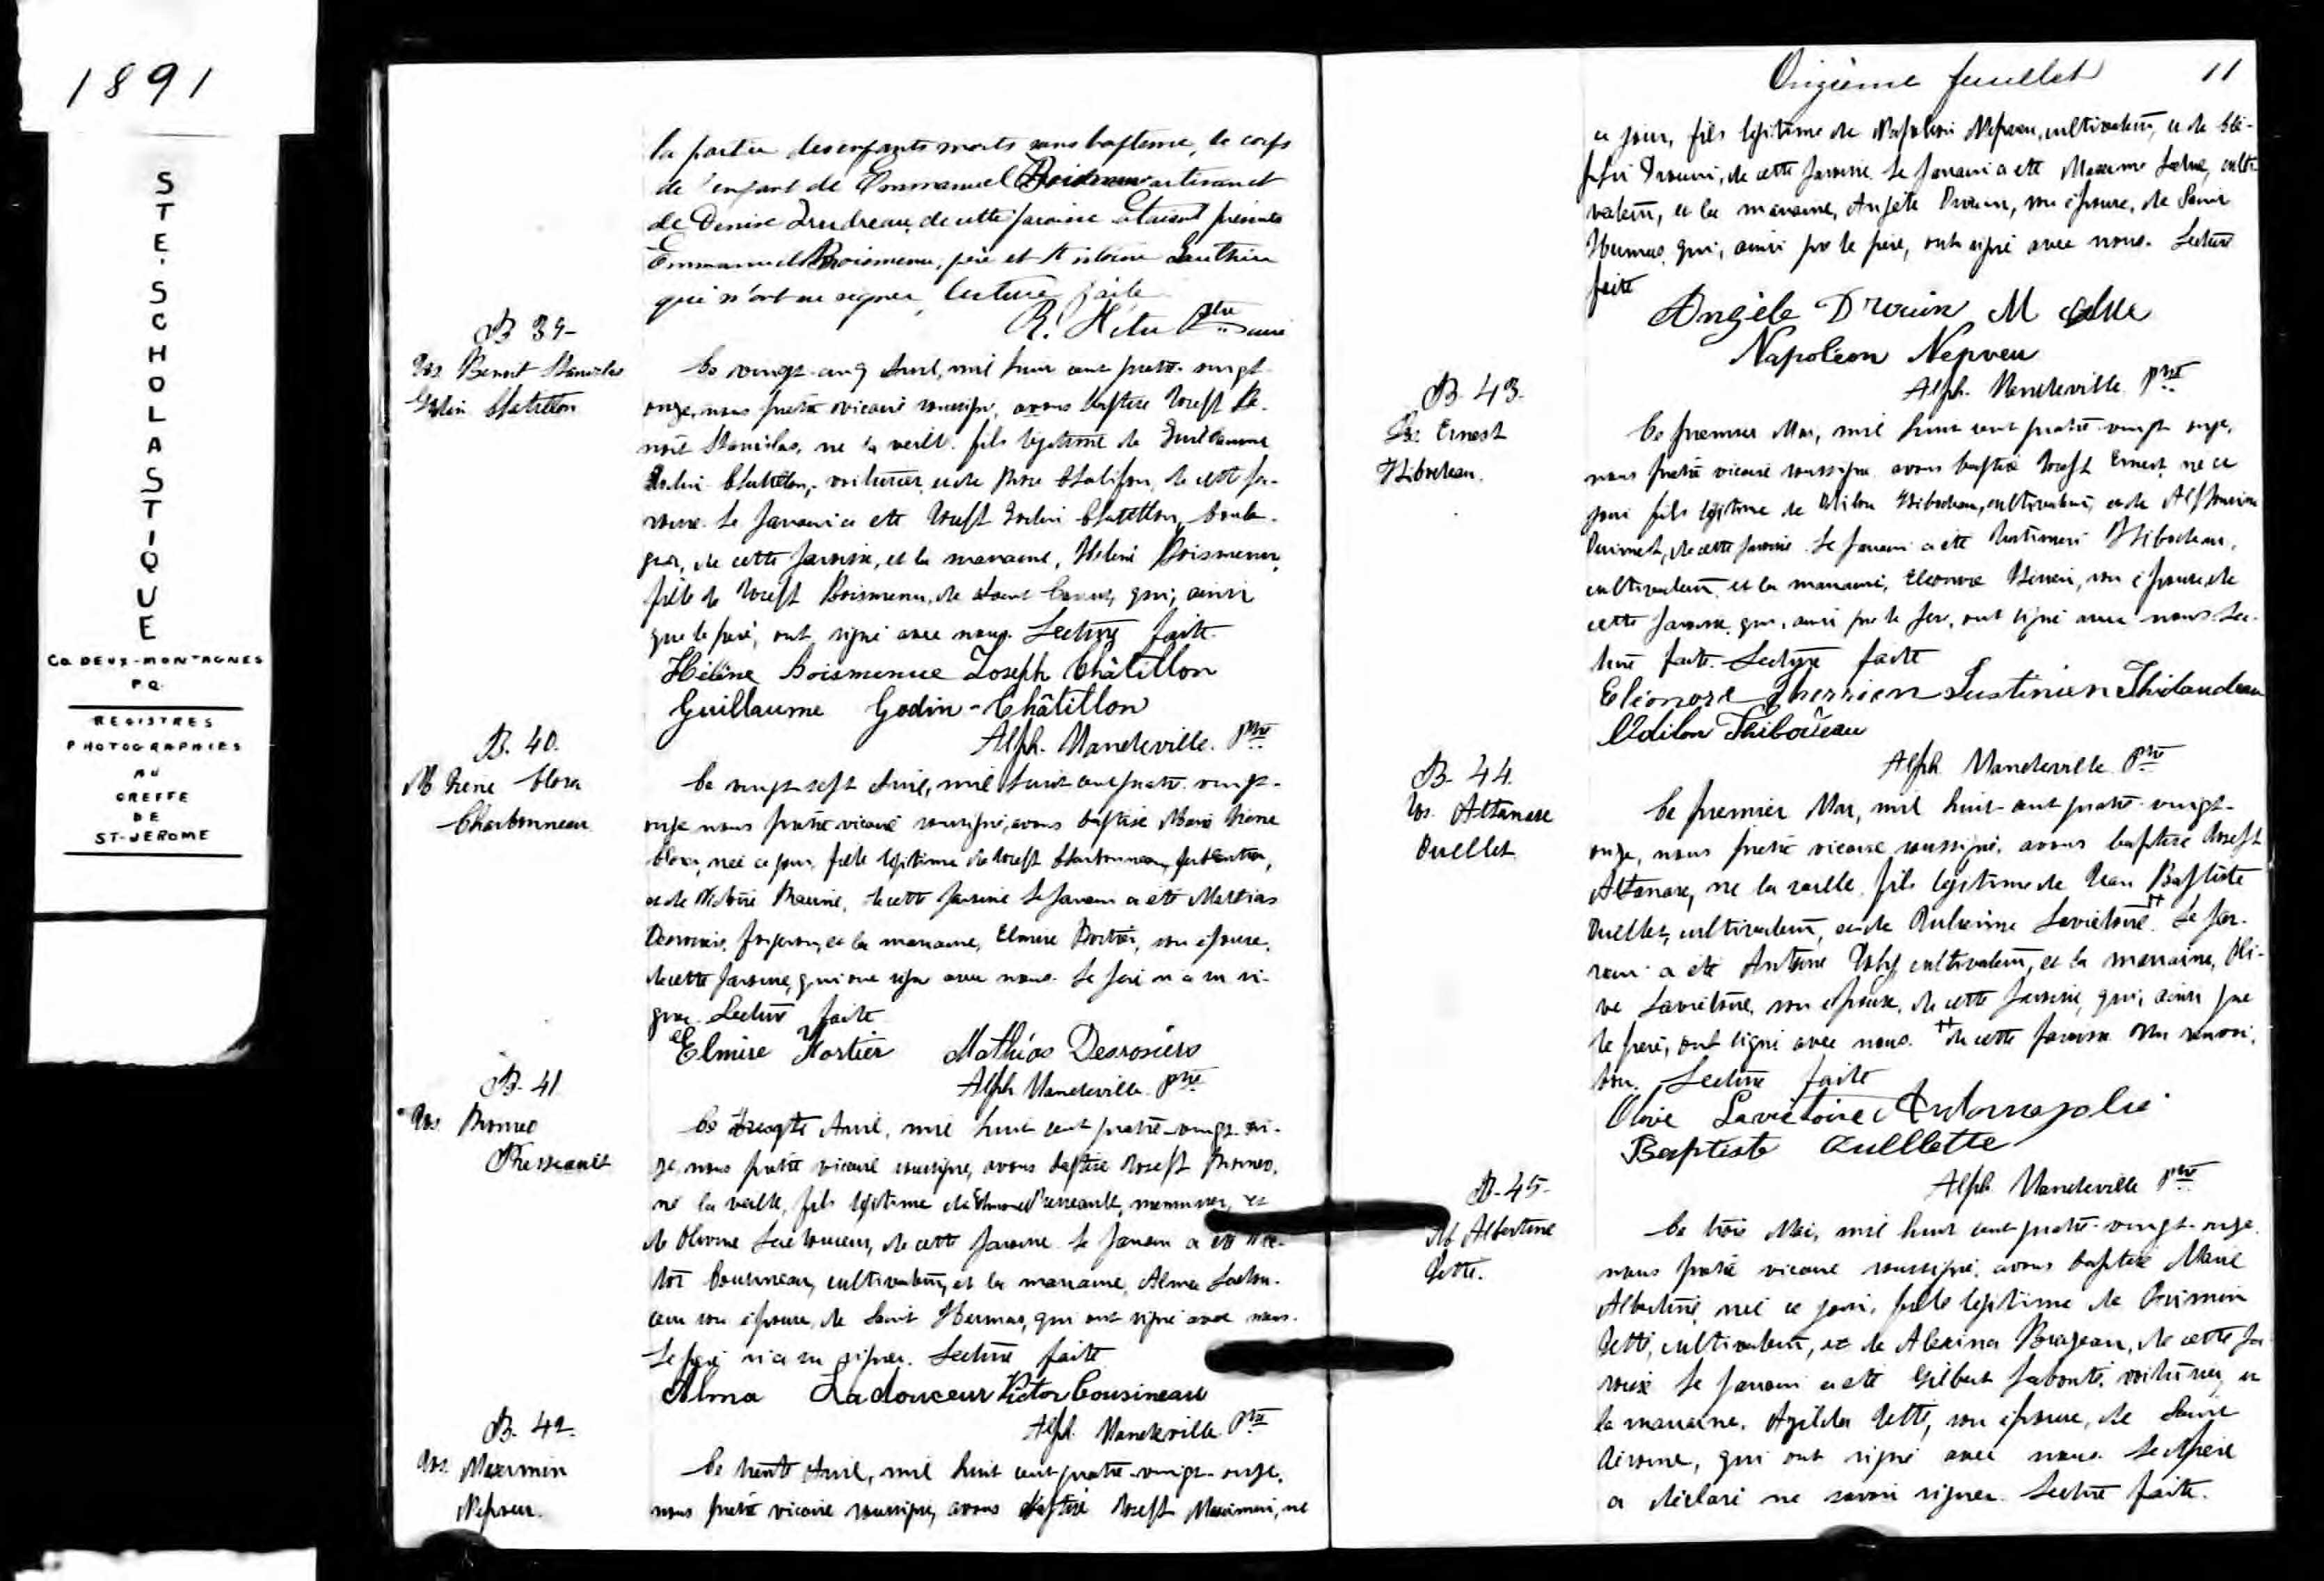 1891
STE-SCHOLASTIQUE
Co DEUX-MONTAGNES
P.Q.
REGISTRES
PHOTOGRAPHIES
AU
GREFFE
DE
ST-JEROME
la partie des enfants morts sans baptême, le corps
de l'enfant de Emmanuel Boismenu artisan et
de Denise Trudreau, de cette paroisse Etaient présents
Emmanuel Boismenu, père et Gauthier
qui n'ont su signer, lecture faite
R. Hétu Ptre curé
B 39-
Jos. Benoit Stanislas
Godin Chatillon
Ce vingt-cinq Avril, mil huit cent quatre-vingt-
onze, nous prêtre vicaire soussigné, avons baptisé Joseph Be-
noit Stanislas, né la veille, fils légitime de Guillaume
Godin Chatillon, voiturier, et de Rose Chalifou, de cette pa-
roisse. Le parrain a été Joseph Godin Chatillon, boulan-
ger, de cette paroisse, et la marraine, Hélène Boismenu,
fille de Joseph Boismenu, de Saint qui, ainsi
que le père, ont signé avec nous. Lecture faite.
Hélène Boismenue Joseph Châtillon
Guillaume Godin-Châtillon
Alph. Mandeville. Ptre
B. 40.
M. Irène Flora
Charbonneau
Ce vingt-sept Avril, mil huit cent quatre-vingt-
onze nous prêtre vicaire soussigné, avons baptisé Marie Irène
Flora, née ce jour, fille légitime de Joseph Charbonneau, ferblantier,
et de Victoire, de cette paroisse Le parrain a été Mathias
Desrosiers, forgeron, et la marraine, Elmire Fortier, son épouse,
de cette paroisse, qui ont signé avec nous. Le père n'a su si-
gner. Lecture faite
Elmire Fortier Mathias Desrosiers
Alph. Mandeville. Ptre
B. 41
Jos. Romeo
Presseault
Ce trente Avril, mil huit cent quatre-vingt-on-
ze, nous prêtre vicaire soussigné, avons baptisé Joseph Romeo,
né la veille, fils légitime de Edmond Presseault, menuisier, et
de Olivine Ladouceur, de cette paroisse. Le parrain a été Vic-
tor Cousineau, cultivateur, et la marraine, Alma Ladou-
ceur son épouse, de Saint Hermas, qui ont signé avec nous.
Le père n'a su signer. Lecture faite
Alma Ladouceur Victor Cousineau
Alph. Mandeville. Ptre
B. 42.
Jos. Maximin
Nepveu.
Ce trente Avril, mil huit cent quatre-vingt-onze,
nous prêtre vicaire soussigné, avons baptisé Joseph Maximin, né
Onzième feuillet 11
ce jour, fils légitime de Napoléon Nepveu, cultivateur, et de
Drouin, de cette paroisse. Le parrain a été Maxime, culti-
vateur, et la marraine, Angèle Drouin, son épouse, de Saint
Hermas, qui, ainsi que le père, ont signé avec nous. Lecture
faite
Angèle Drouin M
Napoléon Nepveu
Alph. Mandeville. Ptre
B. 43.
Jos. Ernest
Thibodeau.
Ce premier Mai, mil huit cent quatre-vingt-onze,
nous prêtre vicaire soussigné avons baptisé Joseph Ernest, né ce
jour fils légitime de Odilon Thibodeau, cultivateur, et de Alphonsine
Ouimet, de cette paroisse. Le parrain a été Justinien Thibodeau,
cultivateur, et la marraine, Eléonore Therrien, son épouse, de
cette paroisse, qui, ainsi que le père, ont signé avec nous. Lec-
ture faite. Lecture faite
Eléonore Therrien Justinien Thibaudeau
Odilon Thibodeau
Alph. Mandeville. Ptre
B. 44.
Jos. Athanase
Ouellet
Ce premier Mai, mil huit-cent quatre-vingt-
onze, nous prêtre vicaire soussigné, avons baptisé Joseph
Athanase, né la veille, fils légitime de Jean Baptiste
Ouellet, cultivateur, et de Lavictoire ++ Le par-
rain a été Antoine Joly cultivateur, et la marraine, Oli-
ve Lavictoire, son épouse, de cette paroisse, qui, ainsi que
le père, ont signé avec nous. ++ de cette paroisse Un renvoi,
bon. Lecture faite
Olive Lavictoire Antoine Jolie
Baptiste Oullette
Alph. Mandeville Ptre
B. 45-
M. Albertine
Jetté.
Ce trois Mai, mil huit cent quatre-vingt-onze.
nous prêtre vicaire soussigné, avons baptisé Marie
Albertine, née ce jour, fille légitime de
Jetté, cultivateur, et de Alexina Brazeau, de cette pa-
roisse Le parrain a été Gilbert Labonté, voiturier, et
la marraine, Azilda Jetté, son épouse, de Saint
Jérôme, qui ont signé avec nous. Le père
a déclaré ne savoir signer. Lecture faite.